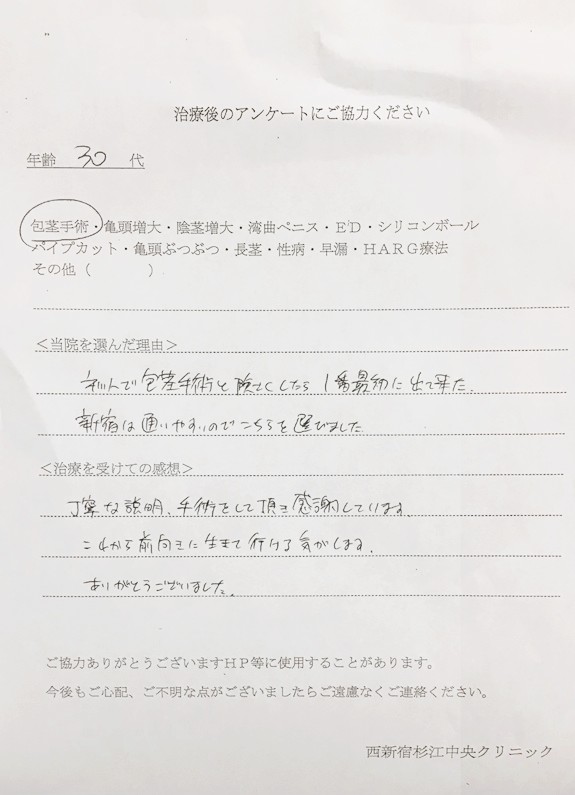 治療後のアンケートにご協力ください
年齢 30 代
包茎手術・亀頭増大・陰茎増大・湾曲ペニス・ED・シリコンボール
パイプカット・亀頭ぶつぶつ・長茎・性病・早漏・HARG療法
その他（　　　　）
<当院を選んだ理由>
ネットで包茎手術と検さくしたら1番最初に出て来た。
新宿は通いやすいのでこちらを選びました
<治療を受けての感想>
丁寧な説明、手術をして頂き感謝しています。
これから前向きに生きて行ける気がします。
ありがとうございました。
ご協力ありがとうございますHP等に使用することがあります。
今後もご心配、ご不明な点がございましたらご遠慮なくご連絡ください。
西新宿杉江中央クリニック